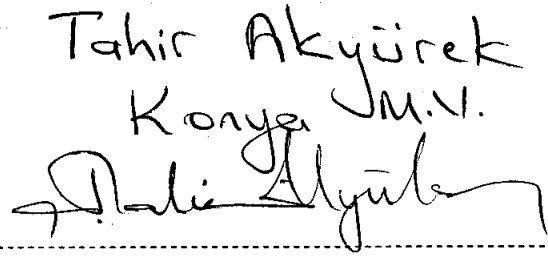 Tahir Akyürek
Konya M.V.
Tahir Akyürek